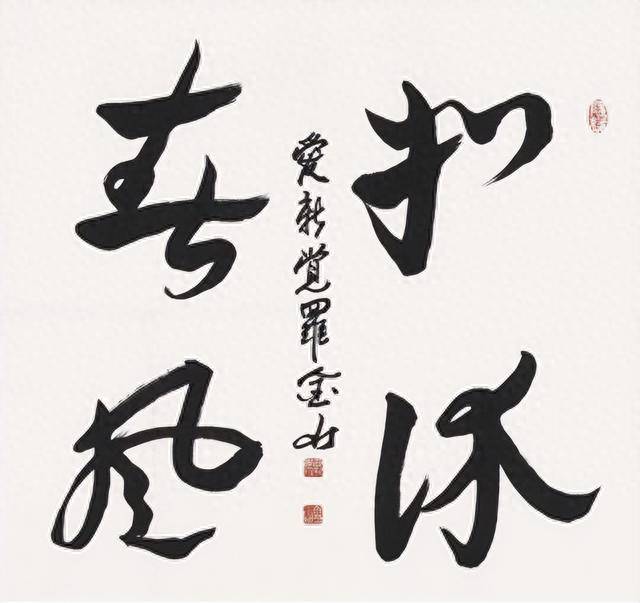 如沐
春風
愛新覺羅金